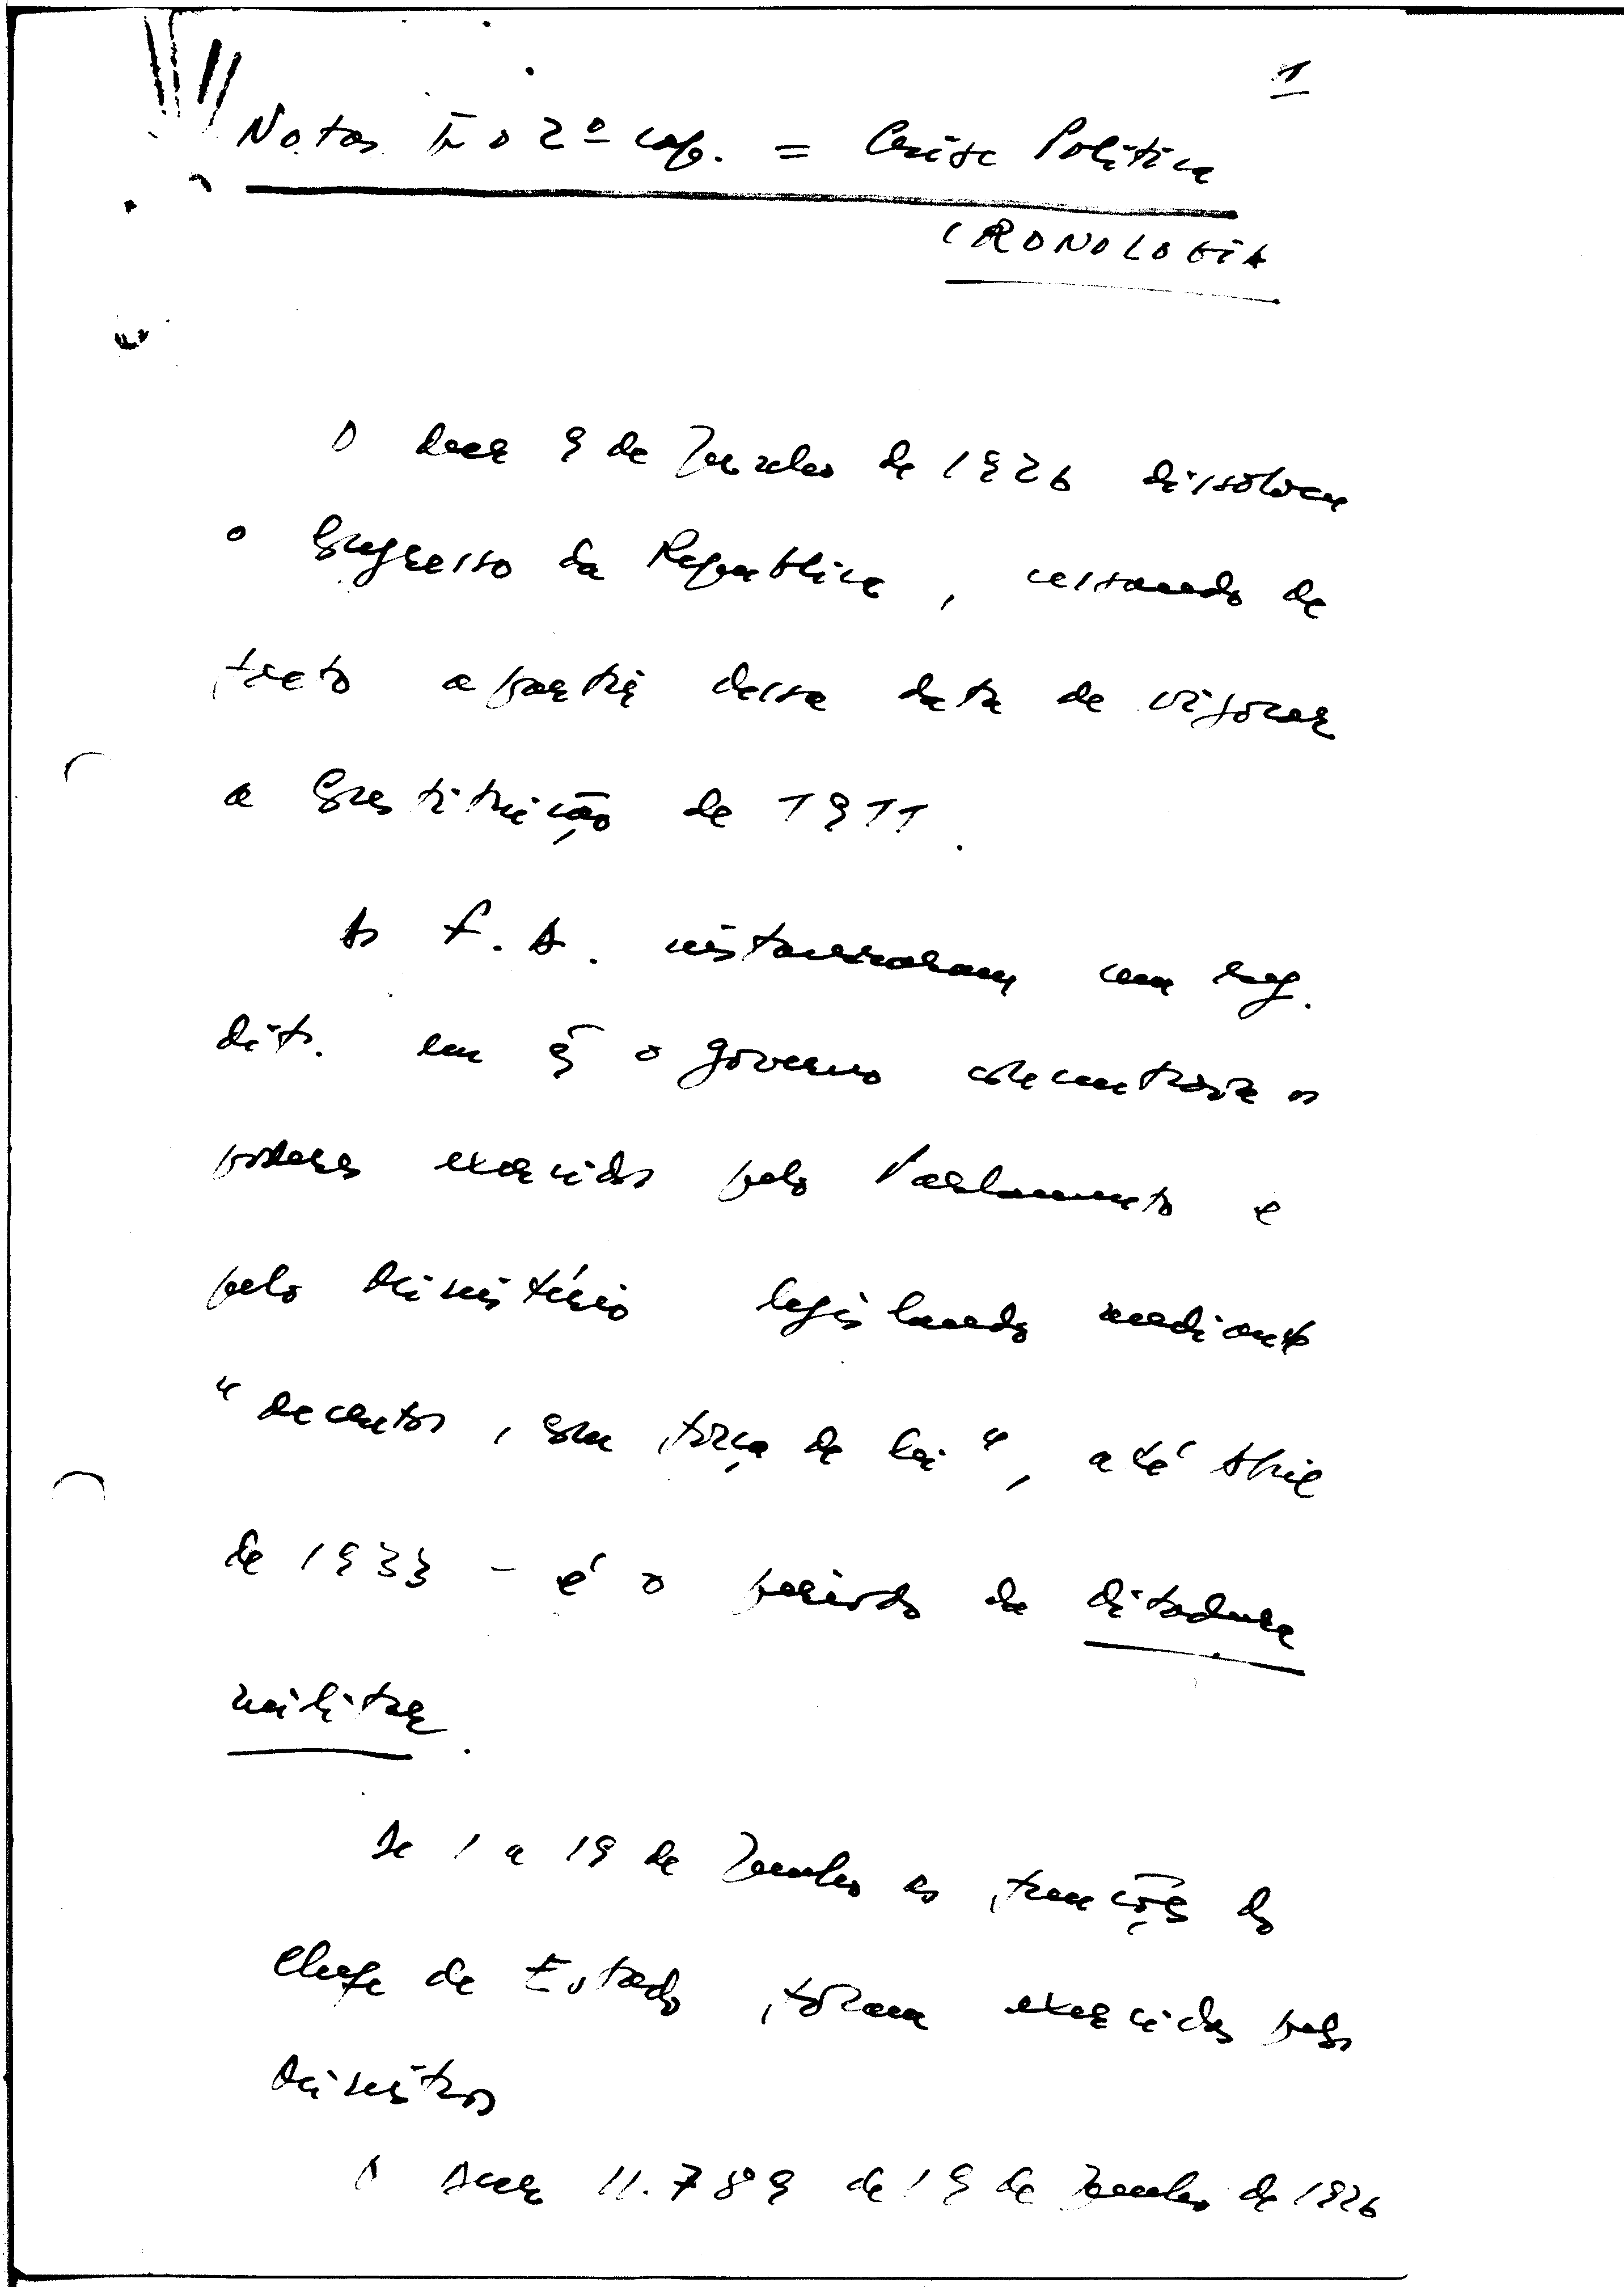 1
Notas p.ª o 2º cap. = Crise Política
CRONOLOGIA
O decr 9 de Junho de 1926 dissolveu
o Congresso da Republica, cessando de
facto a partir dessa data de vigorar
a Constituição de 1911.
As F.A. instauraram um reg.
dit. em q̃ o governo concentrava os
poderes exercidos pelo Parlamento e
pelo Ministério legislando mediante
"decretos, com força de lei", até Abril
de 1933 - é o período da ditadura
militar.
De 1 a 19 de Junho as funções do
Chefe de Estado foram exercidas pelos
Ministros
O Decr 11.789 de 19 de Junho de 1926